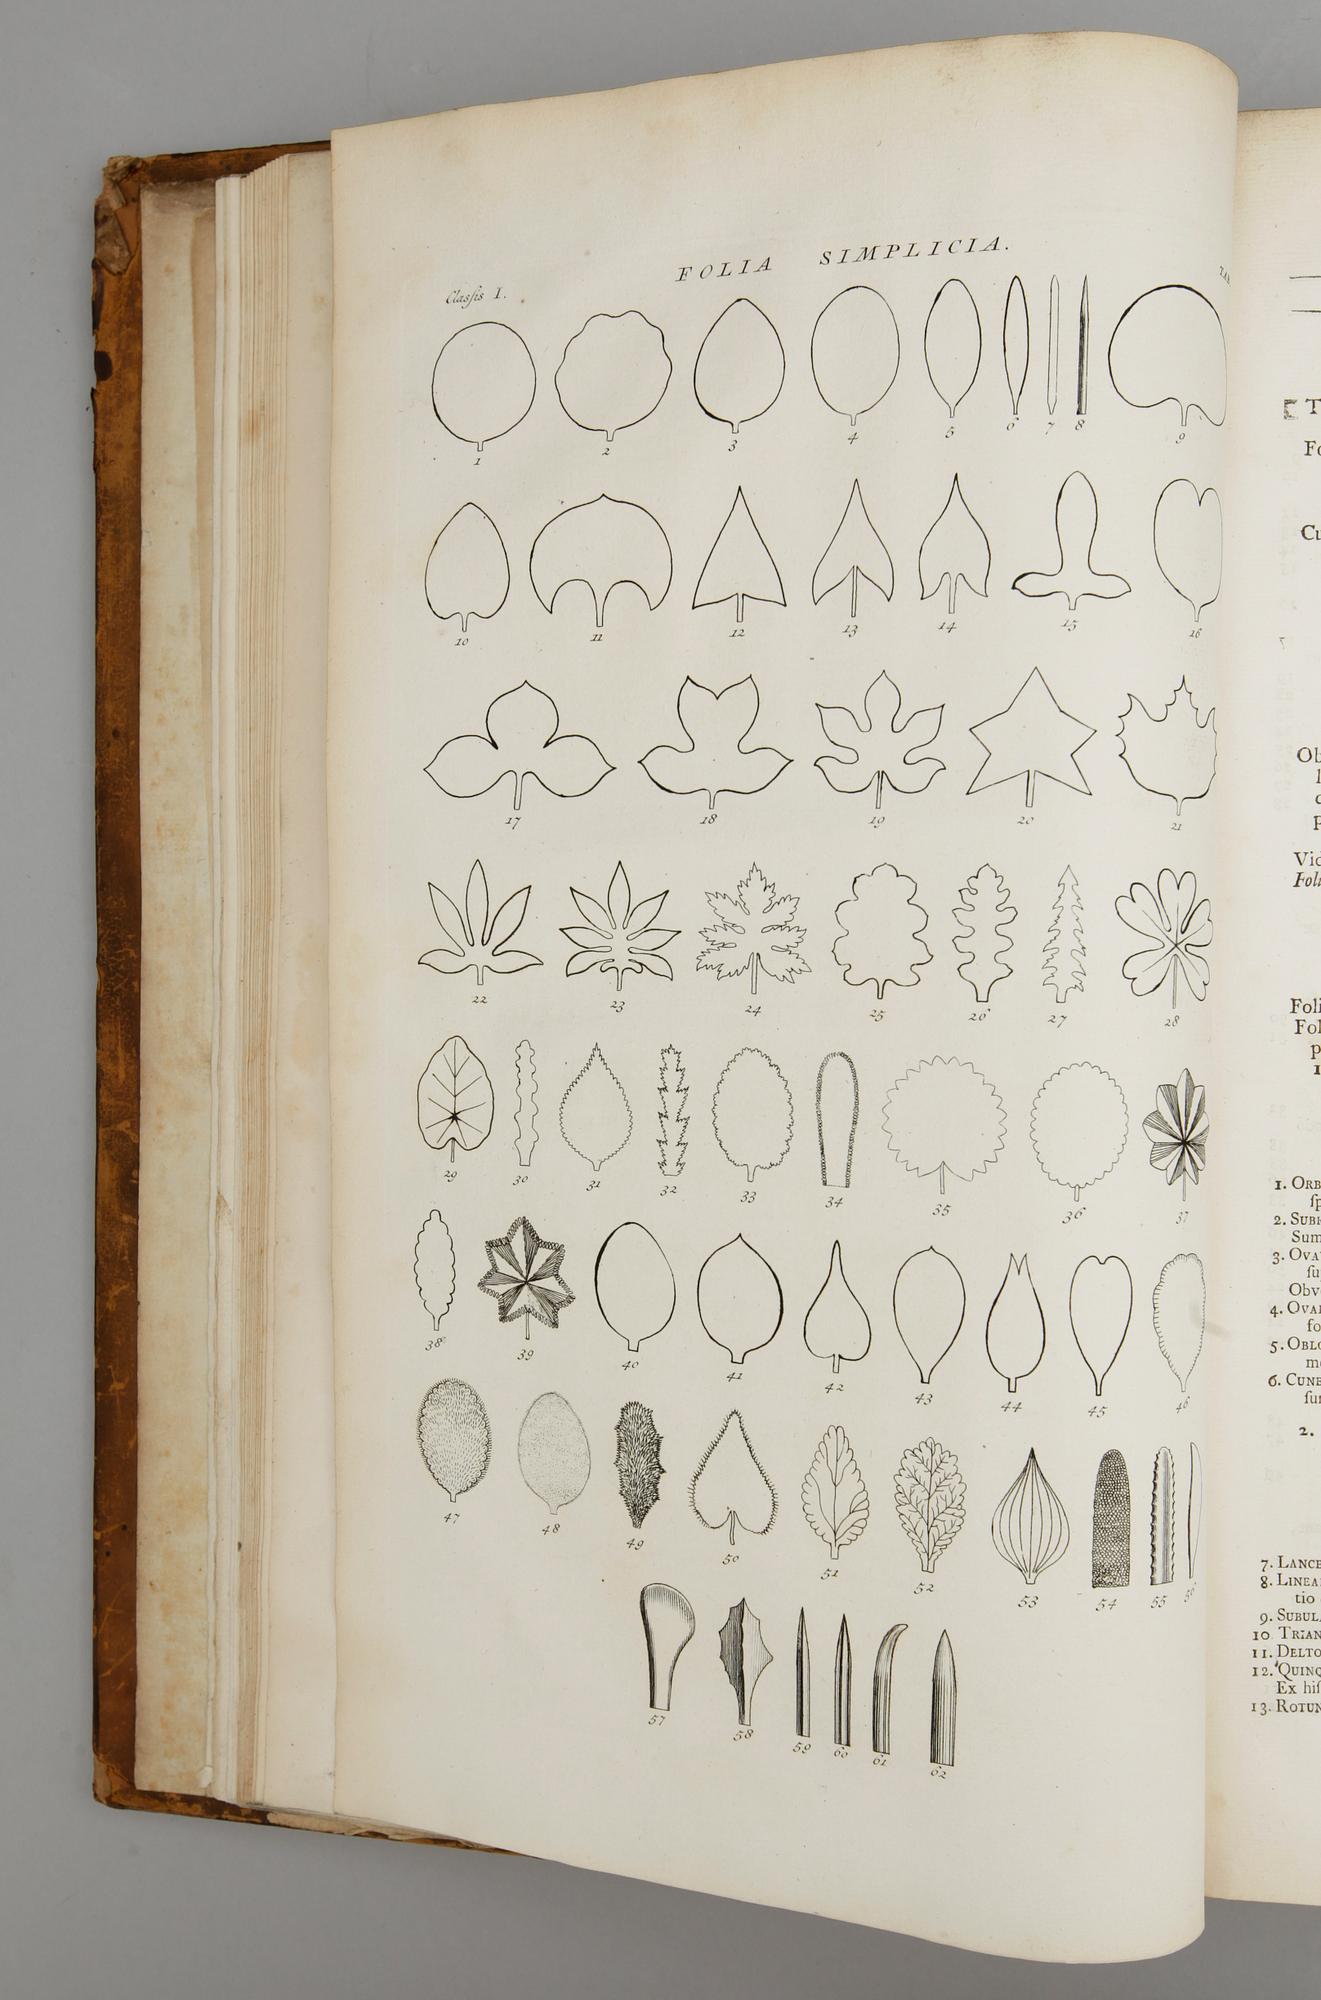 FOLIA SIMPLICIA.
Classis I.
TAB.
1 2 3 4 5 6 7 8 9
10 11 12 13 14 15 16
17 18 19 20 21
22 23 24 25 26 27 28
29 30 31 32 33 34 35 36 37
38 39 40 41 42 43 44 45 46
47 48 49 50 51 52 53 54 55 56
57 58 59 60 61 62
T
Fo
Cu
Ob
P
Vid
Foli
Foli
Fol
p
1
1. ORB
ſp
2. SUB
Sum
3. OVA
ſu
Obv
4. OVAL
fo
5. OBLO
me
6. CUNE
ſur
2.
7. LANCE
8. LINEA
tio
9. SUBUL
10 TRIAN
11. DELTO
12. QUINQ
Ex hiſ
13. ROTUN